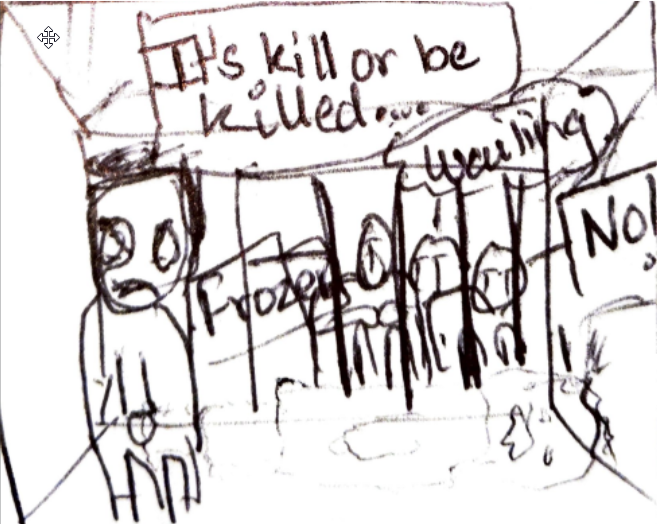 It's kill or be
killed....
wailing
NO!
Frozen